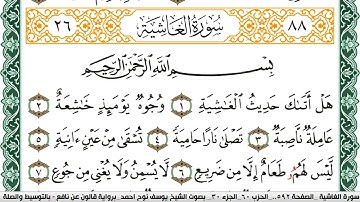 ٨٨ سُورَةُ الغَاشِيَةِ ٢٦
بِسْمِ اللَّهِ الرَّحْمَٰنِ الرَّحِيمِ
هَلْ أَتَىٰكَ حَدِيثُ الْغَٰشِيَةِ ١ وُجُوهٌ يَوْمَئِذٍ خَٰشِعَةٌ ٢
عَامِلَةٌ نَّاصِبَةٌ ٣ تَصْلَىٰ نَارًا حَامِيَةً ٤ تُسْقَىٰ مِنْ عَيْنٍ ءَانِيَةٍ ٥
لَّيْسَ لَهُمْ طَعَامٌ إِلَّا مِن ضَرِيعٍ ٦ لَّا يُسْمِنُ وَلَا يُغْنِي مِن جُوعٍ ٧
سورة الغاشية _ الصفحة ٥٩٢ _ الجزء ٦٠ _ الجزء ٣٠ _ بصوت الشيخ يوسف نوح أحمد _ برواية قالون عن نافع - بالتوسيط والصلة